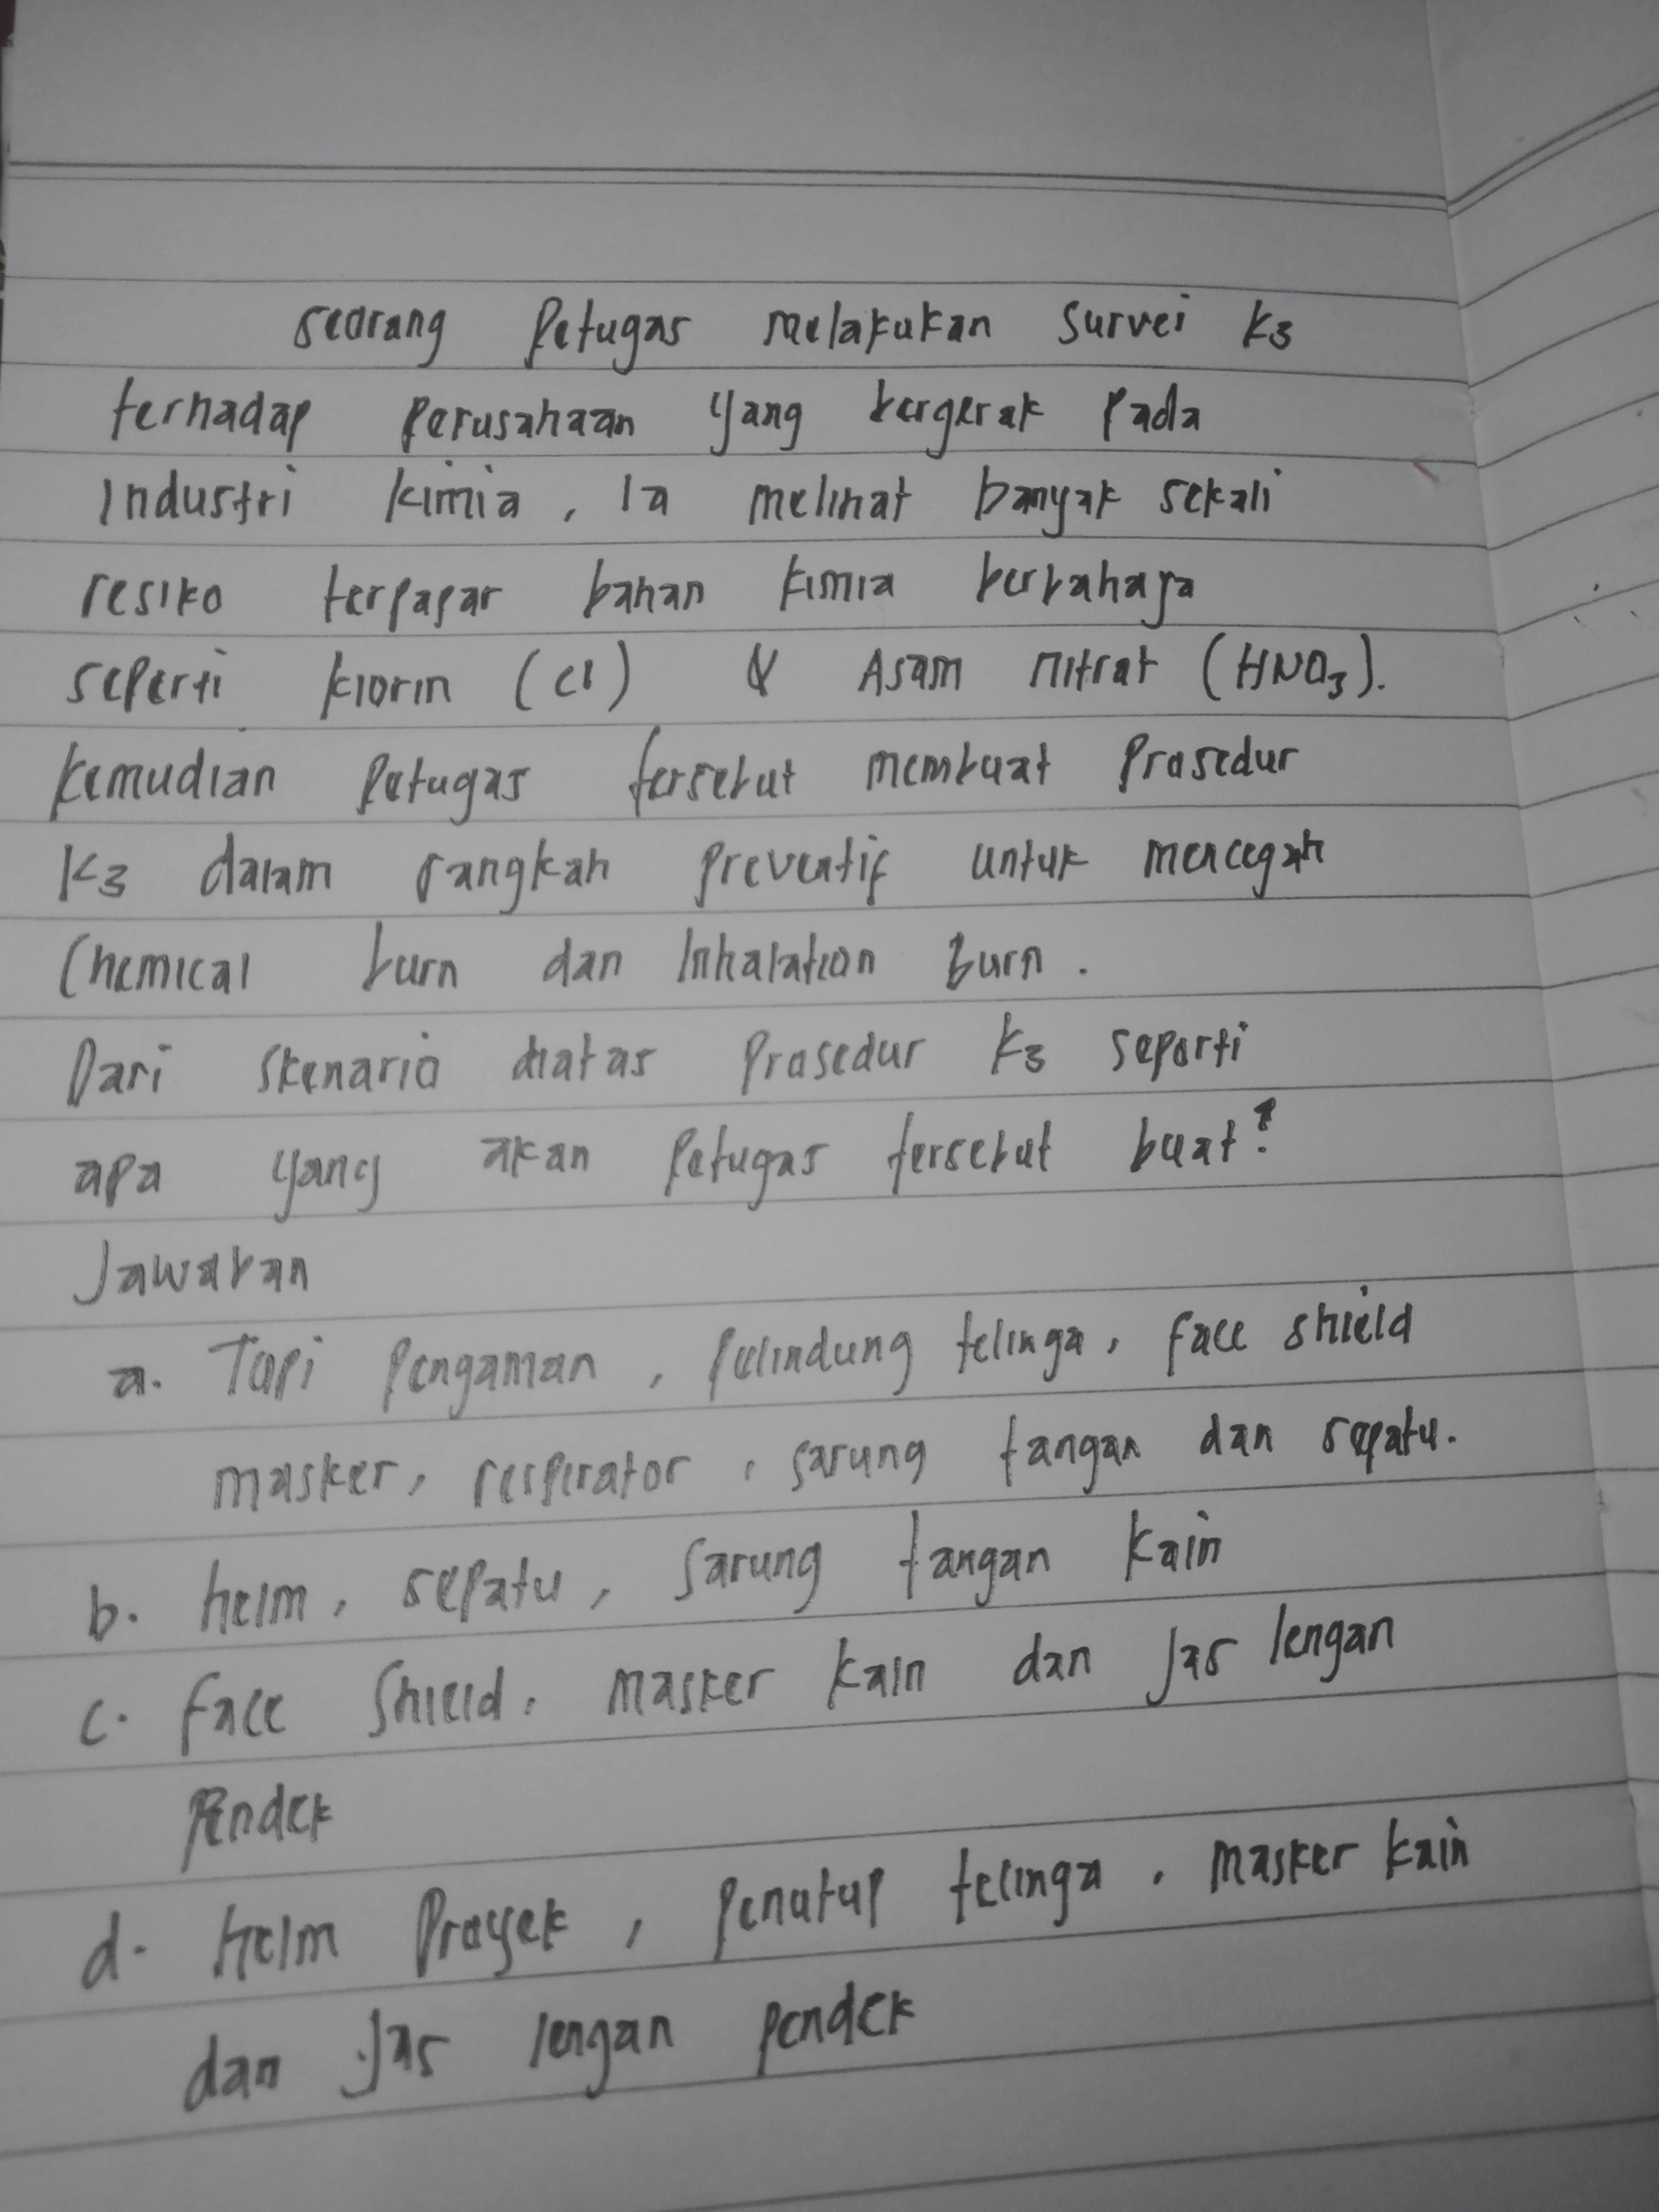 seorang Petugas melakukan survei K3
terhadap Perusahaan yang bergerak Pada
Industri kimia, Ia melihat banyak sekali
resiko terpapar bahan kimia berbahaya
seperti klorin (Cl) & Asam nitrat (HNO3).
kemudian Petugas tersebut membuat Prosedur
K3 dalam rangkah preventif untuk mencegah
Chemical burn dan Inhalation Burn.
Dari Skenario diatas Prosedur K3 seperti
apa yang akan Petugas tersebut buat?
Jawaban
a. Topi Pengaman, Pelindung telinga, face shield
masker, respirator, sarung tangan dan sepatu.
b. helm, sepatu, Sarung tangan kain
c. face Shield, masker kain dan Jas lengan
Pendek
d. helm Proyek, Penutup telinga, masker kain
dan Jas lengan pendek